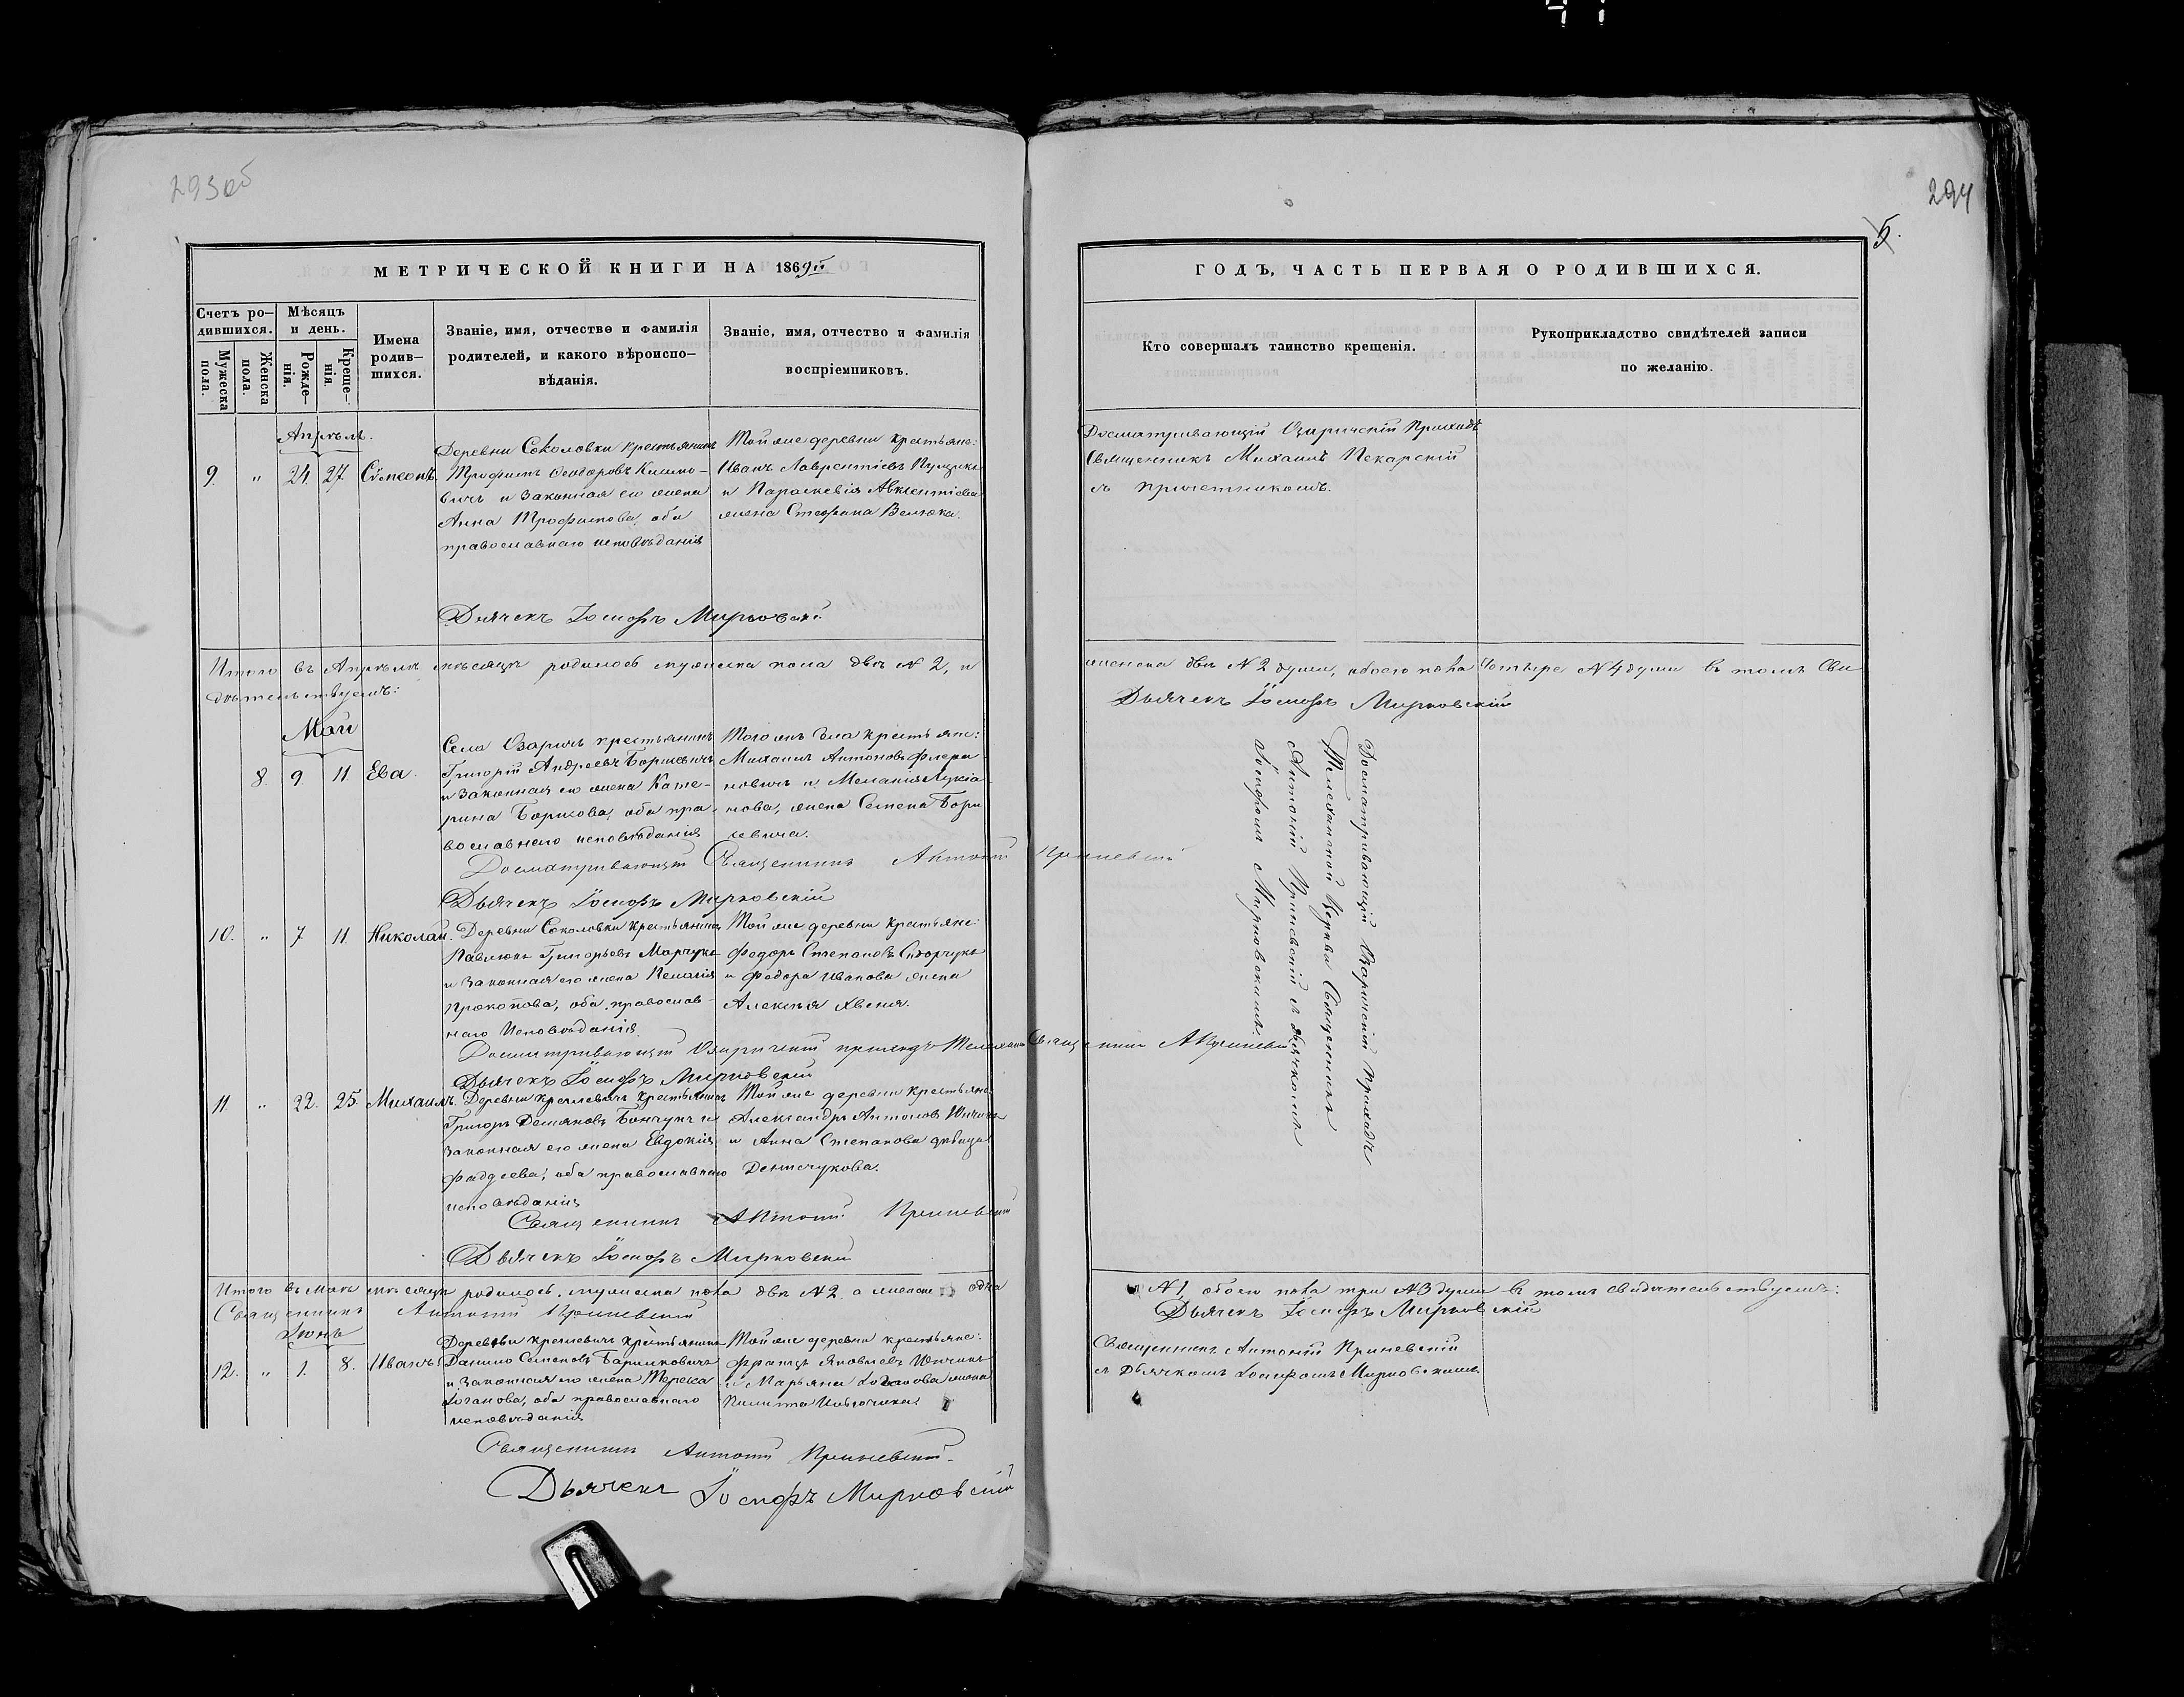 293 об
МЕТРИЧЕСКОЙ КНИГИ НА 1869й
Счетъ ро-
дившихся.
Мѣсяцъ
и день.
Имена
родив-
шихся.
Званіе, имя, отчество и фамилія
родителей, и какого вѣроиспо-
вѣданія.
Званіе, имя, отчество и фамилія
воспріемниковъ.
Мужеска
пола.
Женска
пола.
Рожде-
нія.
Креше-
нія.
Апрѣль.
9. " 24. 27 Сѵмеонъ.
Деревни Соколовки крестьянинъ
Трофимъ Ѳеодоровъ Климо-
вичъ и законная его жена
Анна Трофимова, оба
православнаго исповѣданія
Той же деревни крестьяне:
Иванъ Лаврентіевъ
и Параскевія Авксентіева
жена Стефана Велюка.
Дьячекъ Іосифъ Мирковскій
Итого въ Апрѣлѣ мѣсяцѣ родилось мужеска пола два N 2, и
дѣтельствуемъ:
Май
8. 9. 11. Ева.
Села Озаричъ крестьянинъ
Григорій Андреевъ Борисевичъ
и законная его жена Кате-
рина Борисова, оба пра-
вославнаго исповѣданія
Того жъ села крестьяне:
Михаилъ Антоновъ Флери-
новичъ и Меланія Лукія-
нова, жена Семена Бори-
севича.
Досматривающій Священникъ Антоній Криневскій
Дьячекъ Іосифъ Мирковскій
10. " 7 11. Николай.
Деревни Соколовки крестьянинъ
Павлюкъ Григорьевъ Марчукъ
и законная его жена Пелагія
Прокопова, оба православ-
наго исповѣданія
Той же деревни крестьяне:
Федоръ Степановъ Сидорчукъ
и Федора Иванова жена
Алексѣя Хвеня.
Досматривающій Озаричскій приходъ Священникъ А Криневскій
Дьячекъ Іосифъ Мирковскій
11. " 22. 25. Михаилъ.
Деревни Кремевичъ крестьянинъ
Григоръ Демяновъ Бончукъ и
законная его жена Евдокія
Фадѣева, оба православнаго
исповѣданія
Той же деревни крестьяне
Александръ Антоновъ
и Анна Степанова дѣвица
Денисчукова.
Священникъ Антоній Криневскій
Дьячекъ Іосифъ Мирковскій
Итого въ Маѣ мѣсяцѣ родилось мужеска пола два N 2. а женска одна
Священникъ Антоній Криневскій
Іюнь
12. " 1. 8. Иванъ.
Деревни Кремевичъ крестьянинъ
Данило Семеновъ
и законная его жена Тереса
Логанова, оба православнаго
исповѣданія
Той же деревни крестьяне:
Францъ Яковлевъ
и Марьяна жена
Священникъ Антоній Криневскій
Дьячекъ Іосифъ Мирковскій
294
5.
ГОДЪ, ЧАСТЬ ПЕРВАЯ О РОДИВШИХСЯ.
Кто совершалъ таинство крещенія.
Рукоприкладство свидѣтелей записи
по желанію.
Досматривающій Озаричскій Приходъ
Священникъ Михаилъ Пекарскій
съ причетникомъ.
женска два N 2 души, обоего пола четыре N 4 души въ томъ Сви
Дьячекъ Іосифъ Мирковскій
Досматривающій Озаричскій Приходъ
Телеханской Церкви Священникъ
Антоній Криневскій съ дьячкомъ
Іосифомъ Мирковскимъ.
N 1, обоего пола три N 3 души въ томъ свидѣтельствуемъ:
Дьячекъ Іосифъ Мирковскій
Священникъ Антоній Криневскій
съ Дьячкомъ Іосифомъ Мирковскимъ.